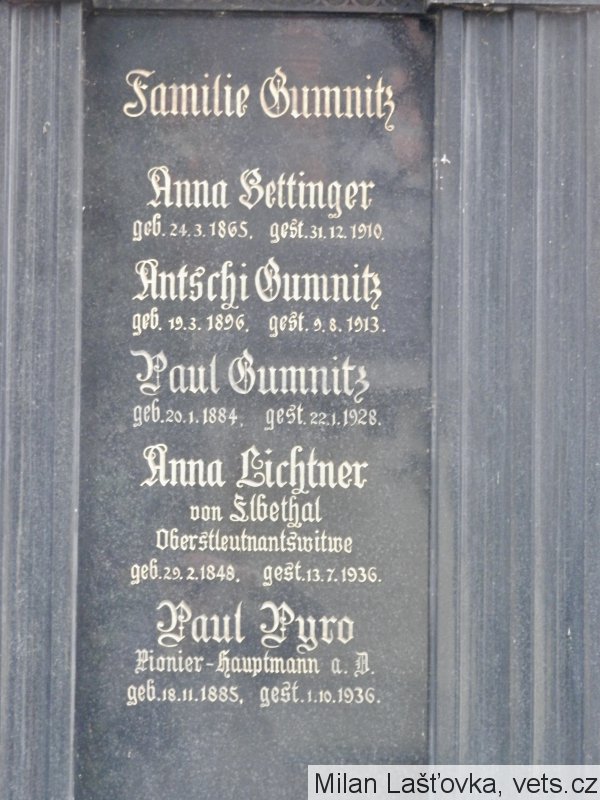 Familie Gumnitz
Anna Hettinger
geb. 24.3.1865. gest. 31.12.1910.
Antschi Gumnitz
geb. 19.3.1896. gest. 9.8.1913.
Paul Gumnitz
geb. 20.1.1884. gest. 22.1.1928.
Anna Lichtner
von Elbethal
Oberstleutnantswitwe
geb. 29.2.1848. gest. 13.7.1936.
Paul Pyro
Pionier-Hauptmann a. D.
geb. 18.11.1885. gest. 1.10.1936.
Milan Lašťovka, vets.cz